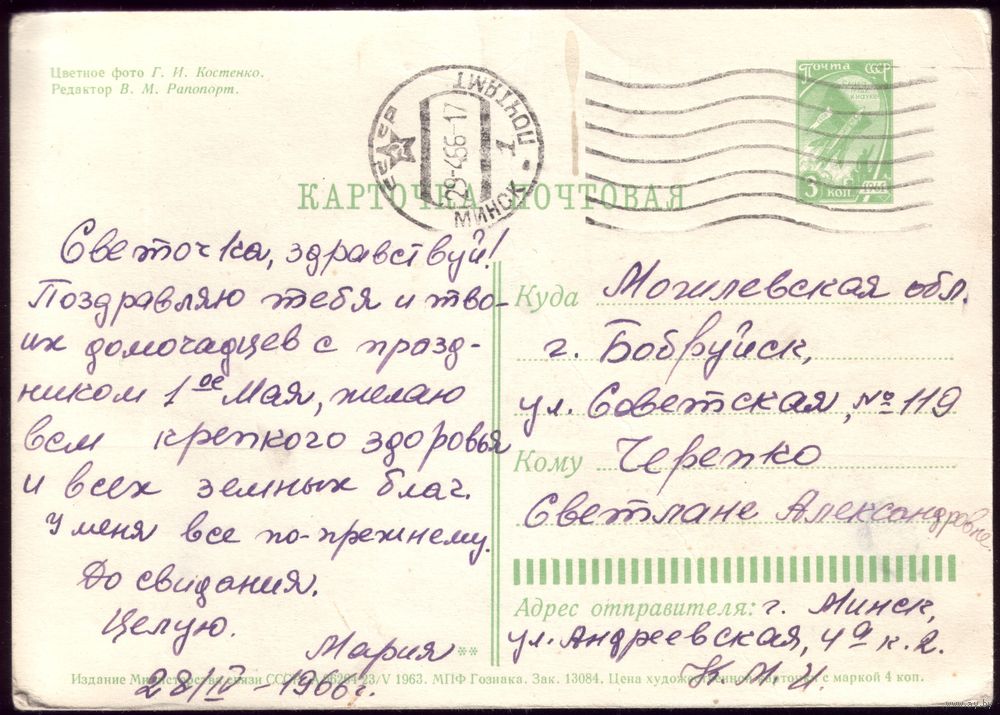 Цветное фото Г. И. Костенко.
Редактор В. М. Рапопорт.
ПОЧТАМТ 1
МИНСК
29-4 66-17
Почта СССР
3 коп. 1961
КАРТОЧКА ПОЧТОВАЯ
Светочка, здравствуй!
Поздравляю тебя и тво-
их домочадцев с празд-
ником 1ое Мая, желаю
всем крепкого здоровья
и всех земных благ.
У меня все по-прежнему.
До свидания.
Целую.
Мария
28/IV-1966г.
Куда Могилевская обл.
г. Бобруйск,
ул. Советская, № 119
Кому Черепко
Светлане Александровне
Адрес отправителя: г. Минск,
ул. Андреевская, 4а к. 2.
К. М. И.
Издание Министерства связи СССР. 23/V 1963. МПФ Гознака. Зак. 13084. Цена художественной карточки с маркой 4 коп.